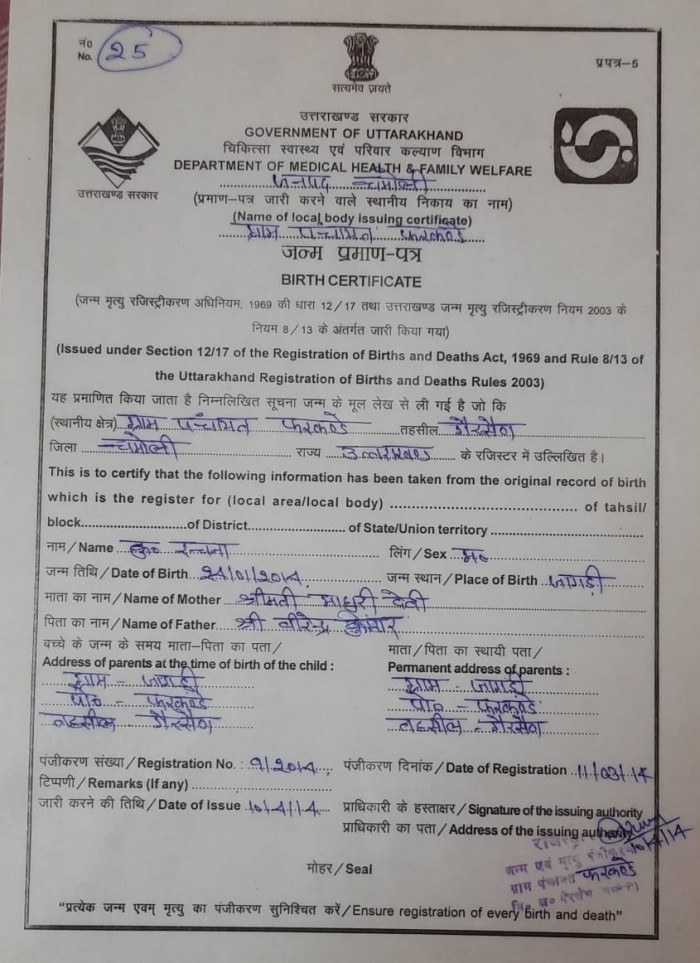 नं०
No. 25
प्रपत्र-5
सत्यमेव जयते
उत्तराखण्ड सरकार
उत्तराखण्ड सरकार
GOVERNMENT OF UTTARAKHAND
चिकित्सा स्वास्थ्य एवं परिवार कल्याण विभाग
DEPARTMENT OF MEDICAL HEALTH & FAMILY WELFARE
जनपद चमोली
(प्रमाण-पत्र जारी करने वाले स्थानीय निकाय का नाम)
(Name of local body issuing certificate)
ग्राम पंचायत फरकंडे
जन्म प्रमाण-पत्र
BIRTH CERTIFICATE
(जन्म मृत्यु रजिस्ट्रीकरण अधिनियम, 1969 की धारा 12/17 तथा उत्तराखण्ड जन्म मृत्यु रजिस्ट्रीकरण नियम 2003 के
नियम 8/13 के अंतर्गत जारी किया गया)
(Issued under Section 12/17 of the Registration of Births and Deaths Act, 1969 and Rule 8/13 of
the Uttarakhand Registration of Births and Deaths Rules 2003)
यह प्रमाणित किया जाता है निम्नलिखित सूचना जन्म के मूल लेख से ली गई है जो कि
(स्थानीय क्षेत्र) ग्राम पंचायत फरकंडे तहसील गैरसैण
जिला चमोली राज्य उत्तराखण्ड के रजिस्टर में उल्लिखित है।
This is to certify that the following information has been taken from the original record of birth
which is the register for (local area/local body) ........ of tahsil/
block........of District........ of State/Union territory ........
नाम/Name कु० रचना लिंग/Sex म०
जन्म तिथि/Date of Birth 24/01/2014 जन्म स्थान/Place of Birth जागड़ी
माता का नाम/Name of Mother श्रीमती माधुरी देवी
पिता का नाम/Name of Father श्री वीरेन्द्र कुमार
बच्चे के जन्म के समय माता-पिता का पता/ माता/पिता का स्थायी पता/
Address of parents at the time of birth of the child : Permanent address of parents :
ग्राम - जागड़ी ग्राम - जागड़ी
पो० - फरकंडे पो० - फरकंडे
तहसील गैरसैण तहसील - गैरसैण
पंजीकरण संख्या/Registration No. : 9/2014 पंजीकरण दिनांक/Date of Registration 11/03/14
टिप्पणी/Remarks (If any) ........
जारी करने की तिथि/Date of Issue 10/4/14 प्राधिकारी के हस्ताक्षर/Signature of the issuing authority
प्राधिकारी का पता/Address of the issuing authority
10/4/14
जन्म एवं मृत्यु
ग्राम पंचायत फरकंडे
मोहर/Seal
"प्रत्येक जन्म एवम् मृत्यु का पंजीकरण सुनिश्चित करें/Ensure registration of every birth and death"